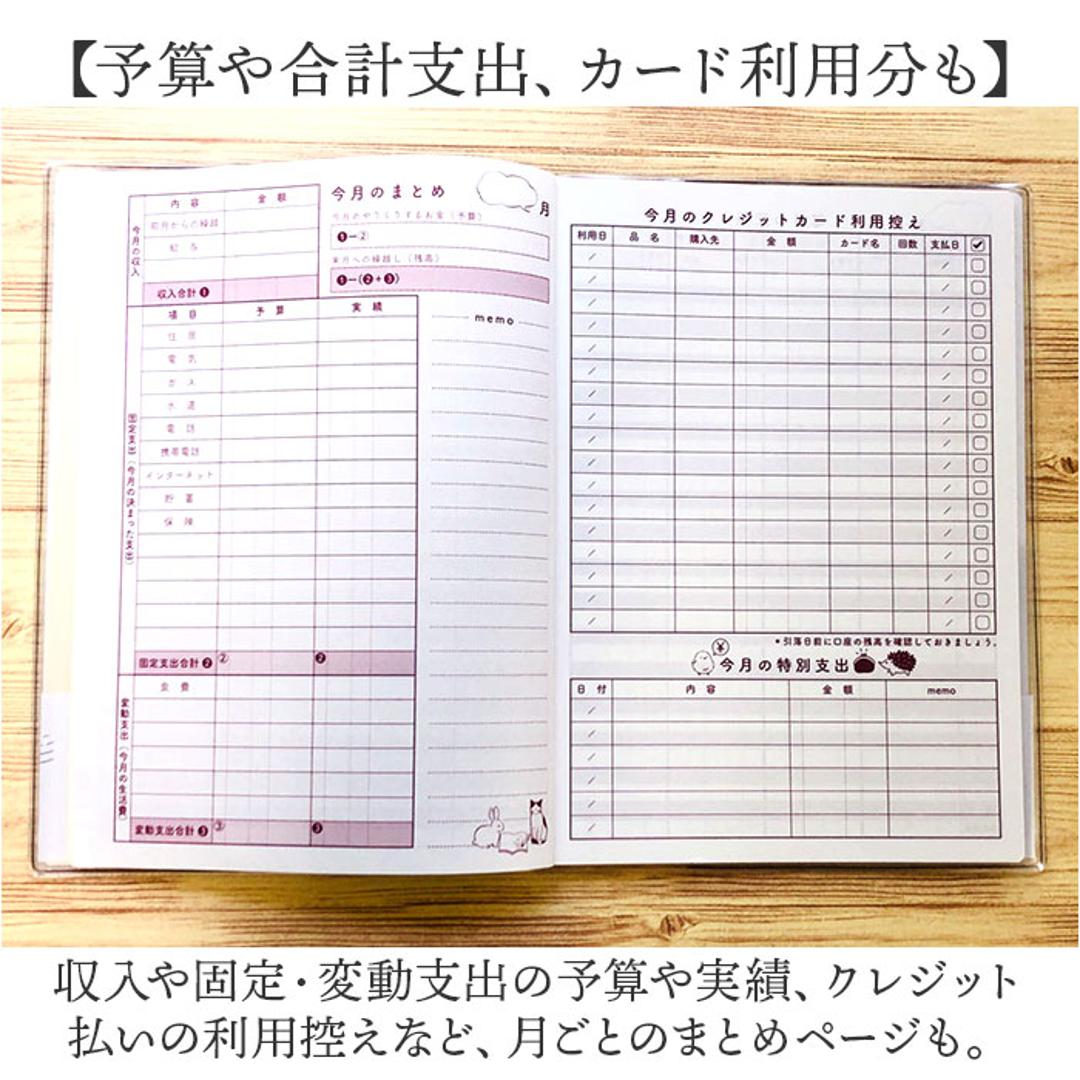 【予算や合計支出、カード利用分も】
今月のまとめ
月
今月のやりくりするお金(予算)
❶ー②
来月への繰越し(残高)
❶ー(❷+❸)
今月の収入
内容 金額
前月からの繰越
給与
収入合計❶
固定支出(今月の決まった支出)
項目 予算 実績
住居
電気
ガス
水道
電話
携帯電話
インターネット
貯蓄
保険
固定支出合計❷ ② ❷
変動支出(今月の生活費)
食費
変動支出合計❸ ③ ❸
memo
今月のクレジットカード利用控え
利用日 品名 購入先 金額 カード名 回数 支払日
*引落日前に口座の残高を確認しておきましょう。
¥
今月の特別支出
日付 内容 金額 memo
収入や固定・変動支出の予算や実績、クレジット
払いの利用控えなど、月ごとのまとめページも。